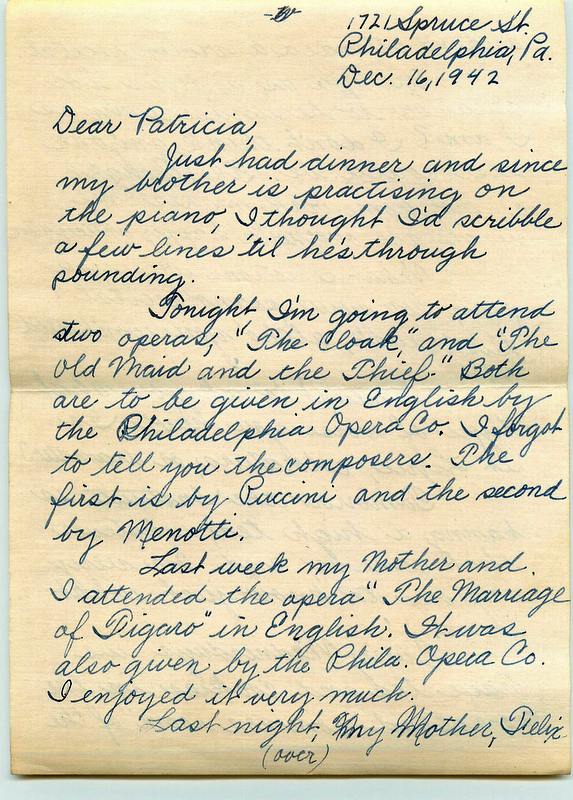 1721 Spruce St.
Philadelphia, Pa.
Dec. 16, 1942
Dear Patricia,
Just had dinner and since
my brother is practising on
the piano, I thought I'd scribble
a few lines 'til he's through
pounding.
Tonight I'm going to attend
two operas, "The Cloak," and "The
Old Maid and the Thief." Both
are to be given in English by
the Philadelphia Opera Co. I forgot
to tell you the composers. The
first is by Puccini and the second
by Menotti.
Last week my Mother and
I attended the opera "The Marriage
of Figaro" in English. It was
also given by the Phila. Opera Co.
I enjoyed it very much.
Last night, my Mother, Felix
(over)